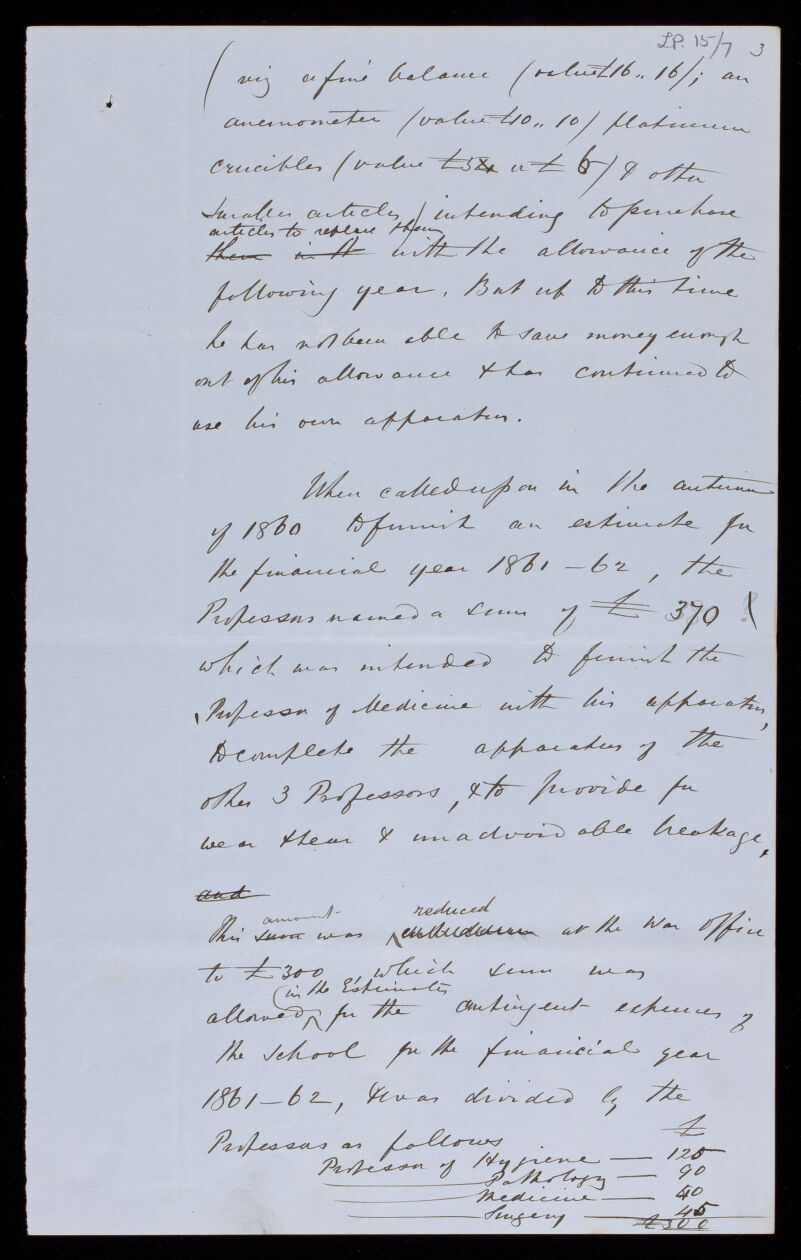 LP. 15/7 3
(viz a fine balance (value £16 .. 16/; an
anemometer (value £10 .. 10/) platinum
crucibles (value or £ 6) & other
smaller articles) intending to purchase
articles to replace them
them in it with the allowance of the
following year. But up to this time
he has not been able to save money enough
out of his allowance & has continued to
use his own apparatus.
When called upon in the autumn
of 1860 to furnish an estimate for
the financial year 1861-62, the
Professors named a sum of £ 370
which was intended to furnish the
Professor of Medicine with his apparatus,
to complete the apparatus of the
other 3 Professors, & to provide for
wear & tear & unadvoidable breakage,
and
amount reduced
This sum was at the War Office
to £300, which sum was
(in the Estimates
allowed for the contingent expenses of
the School for the financial year
1861-62, & was divided by the
Professors as follows £
Professor of Hygiene — 125
Pathology — 90
Medicine — 40
Surgery — 45
£300